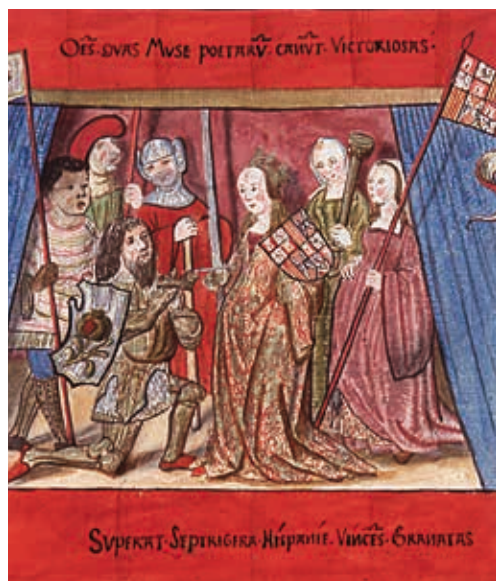 OĒS·QVAS MVSE POETARV̄·CANV̄T·VICTORIOSAS·
SVPERAT·SEPTRIGERA·HISPANIE·VINCĒS·GRANATAS